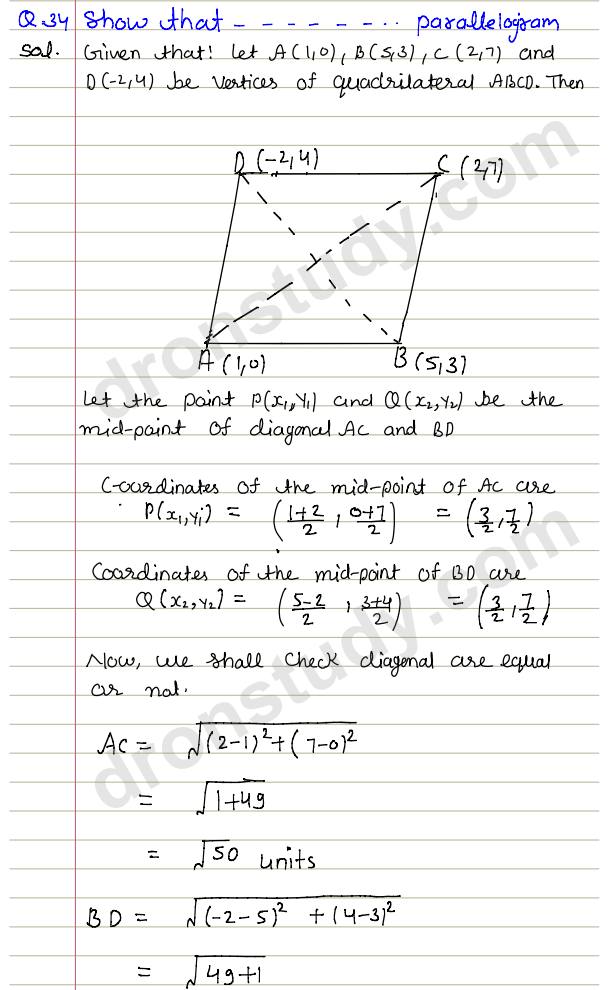 Q.34 Show that - - - - - - - ... parallelogram
Sol. Given that: Let A(1,0), B(5,3), C(2,7) and
D(-2,4) be vertices of quadrilateral ABCD. Then
D (-2,4) C (2,7)
A (1,0) B (5,3)
Let the point P(x₁,y₁) and Q(x₂,y₂) be the
mid-point of diagonal AC and BD
Coordinates of the mid-point of AC are
P(x₁,y₁) = (1+2/2 , 0+7/2) = (3/2, 7/2)
Coordinates of the mid-point of BD are
Q(x₂,y₂) = (5-2/2 , 3+4/2) = (3/2, 7/2)
Now, we shall check diagonal are equal
or not.
AC = √(2-1)²+(7-0)²
= √1+49
= √50 units
BD = √(-2-5)² +(4-3)²
= √49+1
dronstudy.com
dronstudy.com